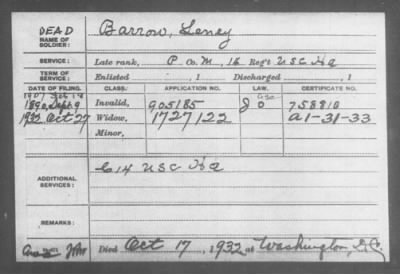 DEAD
NAME OF SOLDIER: Barrow, Leney
SERVICE: Late rank, P Co. M, 16 Reg't U S C H A
TERM OF SERVICE: Enlisted , 1 Discharged , 1
DATE OF FILING. CLASS. APPLICATION NO. LAW. CERTIFICATE NO.
1907
1890, Sept 9 Invalid, 905185 J O 758810
1932 Oct 27 Widow, 1727122 A1-31-33
Minor,
ADDITIONAL SERVICES: C 14 U S C H A
REMARKS:
Died Oct 17, 1932 at Washington, D.C.